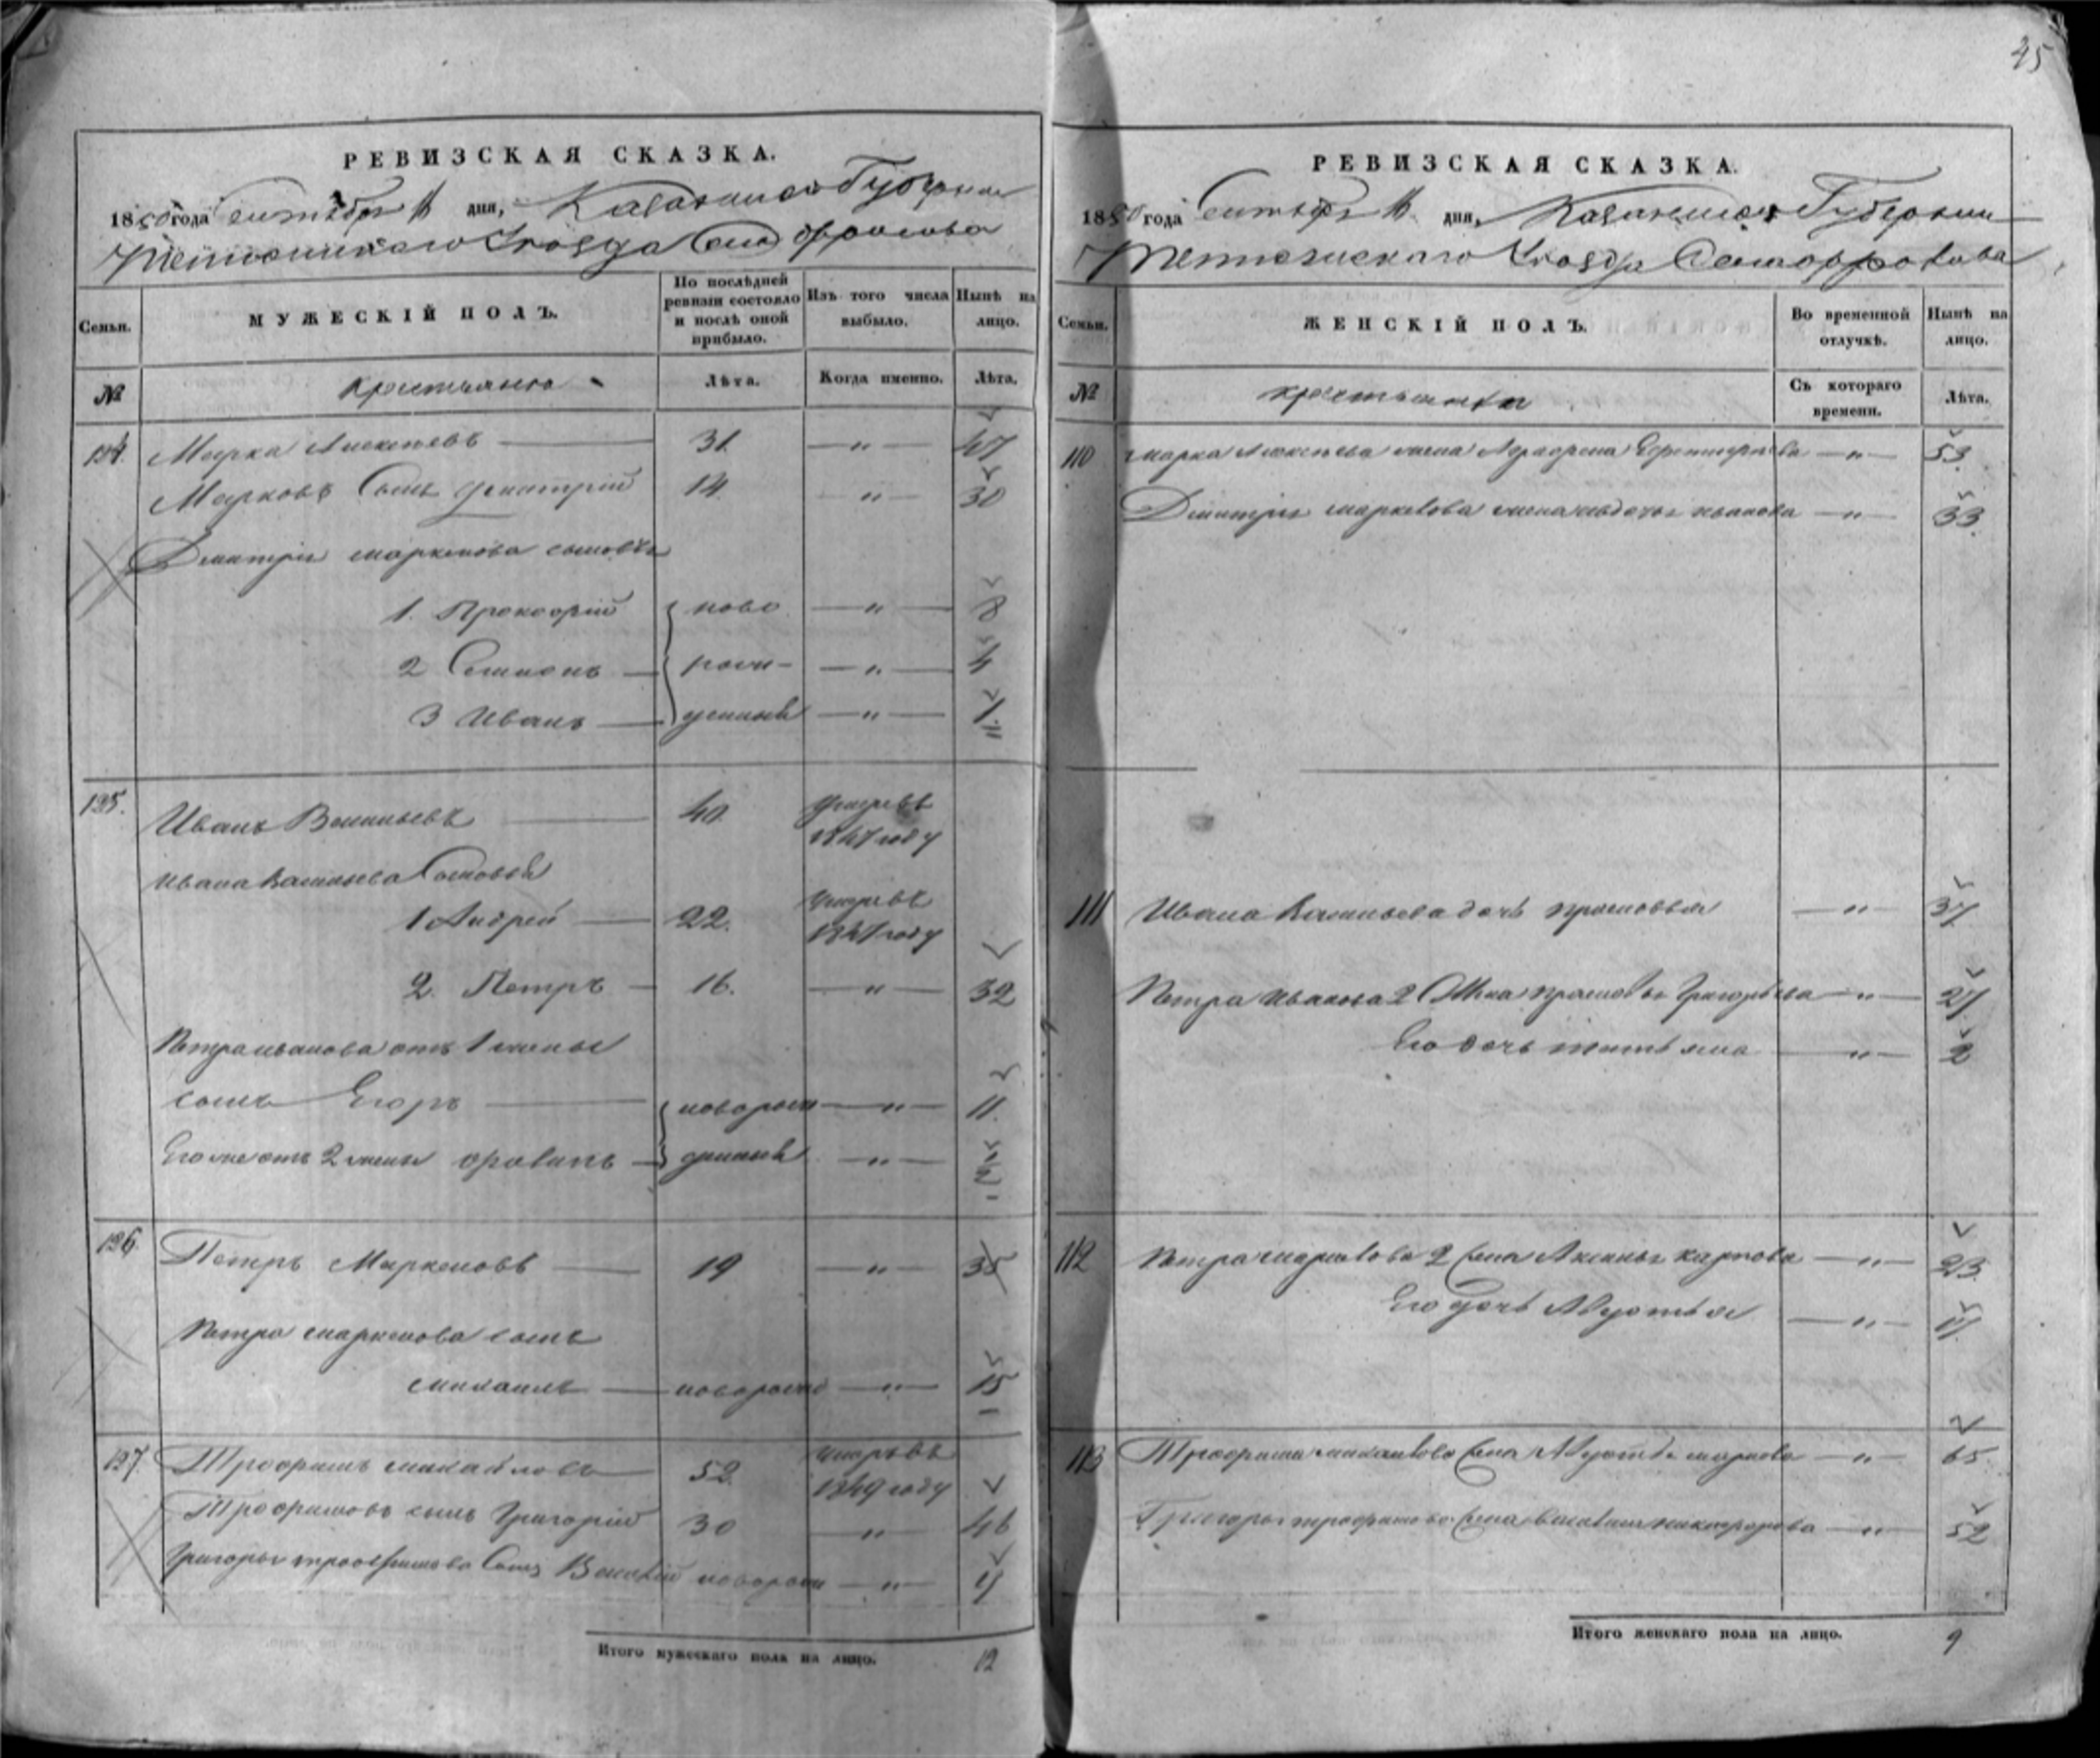 45
РЕВИЗСКАЯ СКАЗКА.
1850 года Сентября дня, Казанской Губернии
Тетюшскаго Уезда Села Фролова
Семьи.
МУЖЕСКІЙ ПОЛЪ.
По послѣдней ревизіи состояло и послѣ оной прибыло.
Изъ того числа выбыло.
Нынѣ на лицо.
№
крестьяне
Лѣта.
Когда именно.
Лѣта.
124. Марка Алексѣевъ 31. — " — 47
Марковъ Сынъ Дмитрій 14. — " — 30
Дмитрія маркелова сыновья
1. Прокофій ново — " — 8
2 Семионъ рож- — " — 4
3 Иванъ денные — " — 1.
125. Иванъ Васильевъ 40. умре въ 1847 году
Ивана Васильева Сыновья
1 Андрей 22. умре въ 1847 году
2. Петръ 16. — " — 32
Петра иванова отъ 1 жены
сынъ Егоръ новорож — " — 11.
Его же отъ 2 жены денные — " —
126. Петръ Маркеловъ 19 — " — 35
Петра маркелова сынъ
михаилъ новорож — " — 15
127. Трофимъ михайловъ 52. умре въ 1849 году
Трофимовъ сынъ Григорій 30 " 46
Григорья трофимова Сынъ Василій новорож — " —
Итого мужескаго пола на лицо. 12
РЕВИЗСКАЯ СКАЗКА.
1850 года Сентября дня, Казанской Губернии
Тетюшскаго Уезда Села Фролова
Семьи.
ЖЕНСКІЙ ПОЛЪ.
Во временной отлучкѣ.
Нынѣ на лицо.
№
крестьянки
Съ котораго времени.
Лѣта.
110 Марка Алексѣева жена — " — 53.
Дмитрия маркелова жена иванова — " — 33.
111 Ивана Васильева дочь прасковья — " — 37
Петра Иванова 2 жена прасковья Григорьева — " — 27
Его дочь татьяна — " — 2
112 Петра маркелова 2 жена Аксинья карпова — " — 23.
Его дочь Авдотья — " —
113 Трофима михайлова жена Авдотья маркова — " — 65.
Григорья трофимова жена — " — 52
Итого женскаго пола на лицо. 9